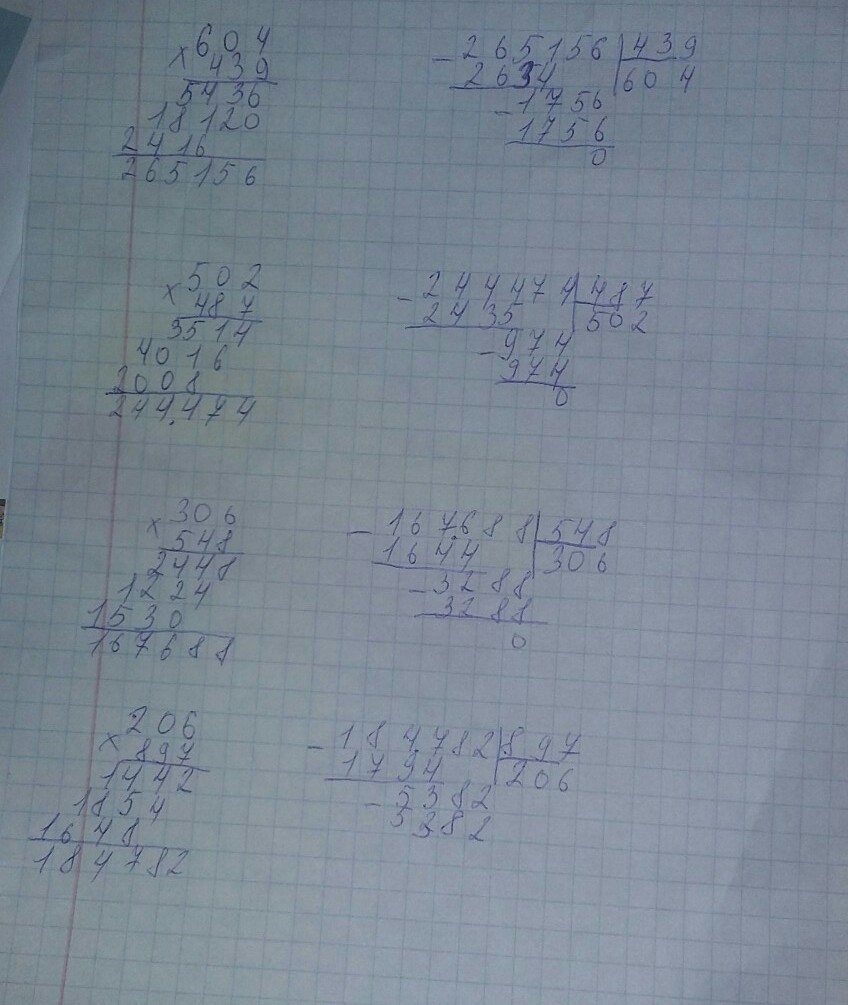 × 604
439
5436
18120
2416
265156
- 265156 | 439
2634 604
- 1756
1756
0
× 502
487
3514
4016
2008
244.474
- 244474 | 487
2435 502
- 974
974
0
× 306
548
2448
1224
1530
167688
- 167688 | 548
1644 306
- 3288
3288
0
× 206
897
1442
1854
1648
184782
- 184782 | 897
1794 206
- 5382
5382